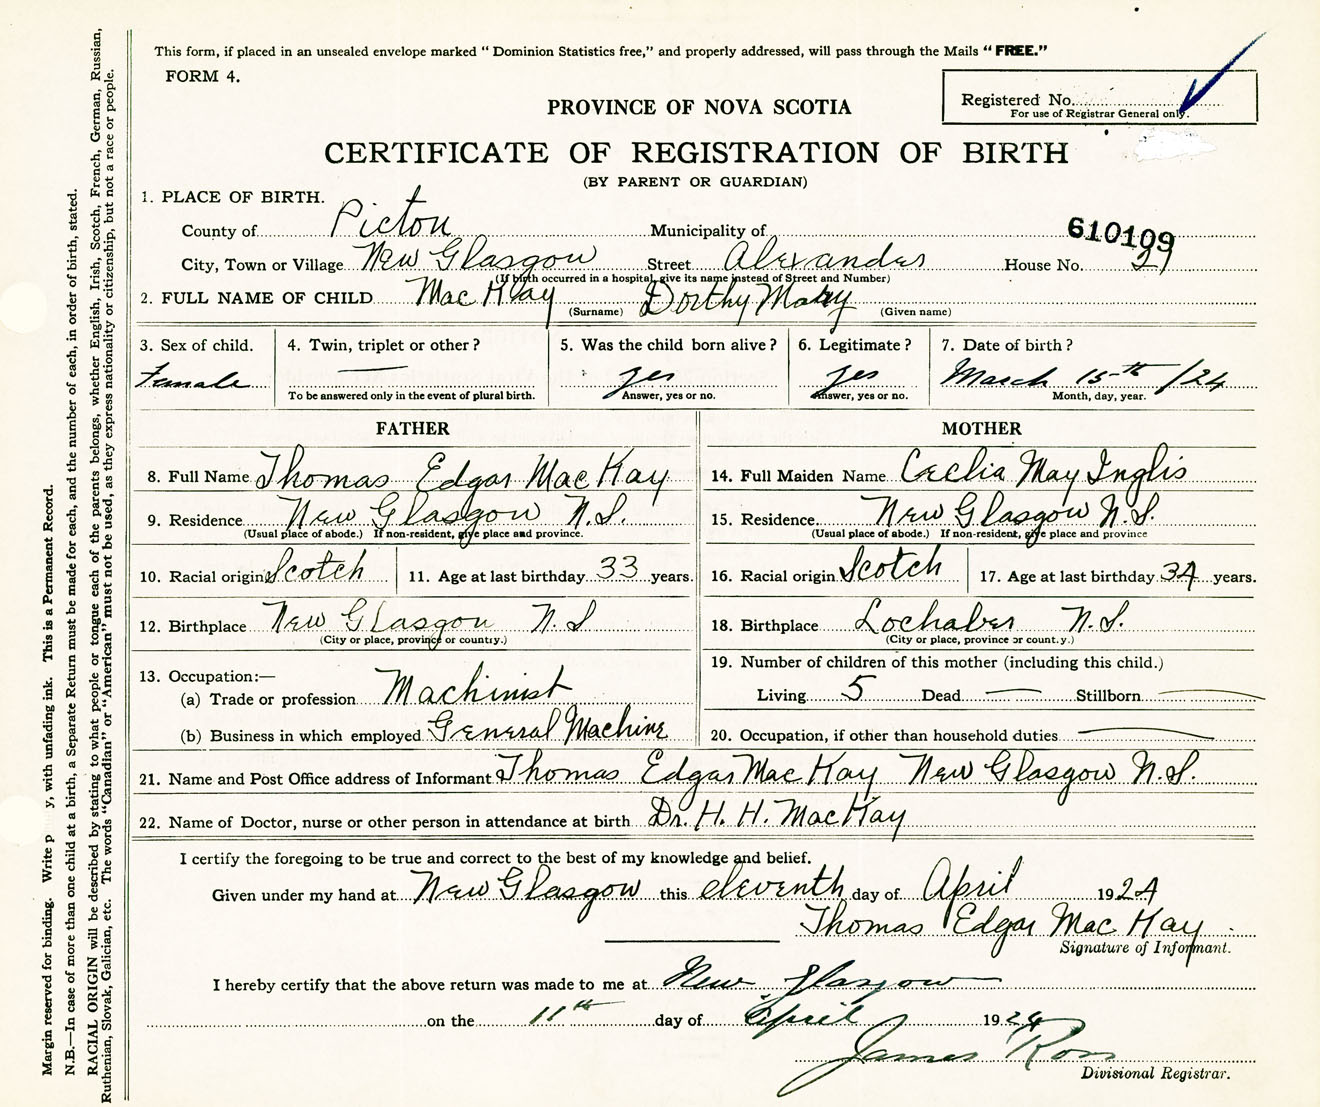 This form, if placed in an unsealed envelope marked “ Dominion Statistics free,” and properly addressed, will pass through the Mails “ FREE.”
FORM 4.
Registered No.
For use of Registrar General only.
PROVINCE OF NOVA SCOTIA
CERTIFICATE OF REGISTRATION OF BIRTH
(BY PARENT OR GUARDIAN)
1. PLACE OF BIRTH.
County of Pictou Municipality of
610109
City, Town or Village New Glasgow Street Alexander House No. 29
(If birth occurred in a hospital, give its name instead of Street and Number)
2. FULL NAME OF CHILD Mac Kay (Surname) Dorthy Mary (Given name)
3. Sex of child. 4. Twin, triplet or other ? 5. Was the child born alive ? 6. Legitimate ? 7. Date of birth ?
Female — yes yes March 15th /24
To be answered only in the event of plural birth. Answer, yes or no. Answer, yes or no. Month, day, year.
FATHER MOTHER
8. Full Name Thomas Edgar Mac Kay 14. Full Maiden Name Cecelia May Inglis
9. Residence New Glasgow N.S. 15. Residence New Glasgow N.S.
(Usual place of abode.) If non-resident, give place and province. (Usual place of abode.) If non-resident, give place and province
10. Racial origin Scotch 11. Age at last birthday 33 years. 16. Racial origin Scotch 17. Age at last birthday 34 years.
12. Birthplace New Glasgow N.S 18. Birthplace Lochaber N.S.
(City or place, province or country.) (City or place, province or country.)
13. Occupation:— 19. Number of children of this mother (including this child.)
(a) Trade or profession Machinist Living 5 Dead — Stillborn —
(b) Business in which employed General Machine 20. Occupation, if other than household duties —
21. Name and Post Office address of Informant Thomas Edgar Mac Kay New Glasgow N.S.
22. Name of Doctor, nurse or other person in attendance at birth Dr. H. H. MacKay
I certify the foregoing to be true and correct to the best of my knowledge and belief.
Given under my hand at New Glasgow this eleventh day of April 1924
Thomas Edgar Mac Kay
Signature of Informant.
I hereby certify that the above return was made to me at New Glasgow
on the 11th day of April 1924
James Ross
Divisional Registrar.
Margin reserved for binding. Write p y, with unfading ink. This is a Permanent Record.
N.B.—In case of more than one child at a birth, a Separate Return must be made for each, and the number of each, in order of birth, stated.
RACIAL ORIGIN will be described by stating to what people or tongue each of the parents belongs, whether English, Irish, Scotch, French, German, Russian,
Ruthenian, Slovak, Galician, etc. The words “Canadian” or “American” must not be used, as they express nationality or citizenship, but not a race or people.